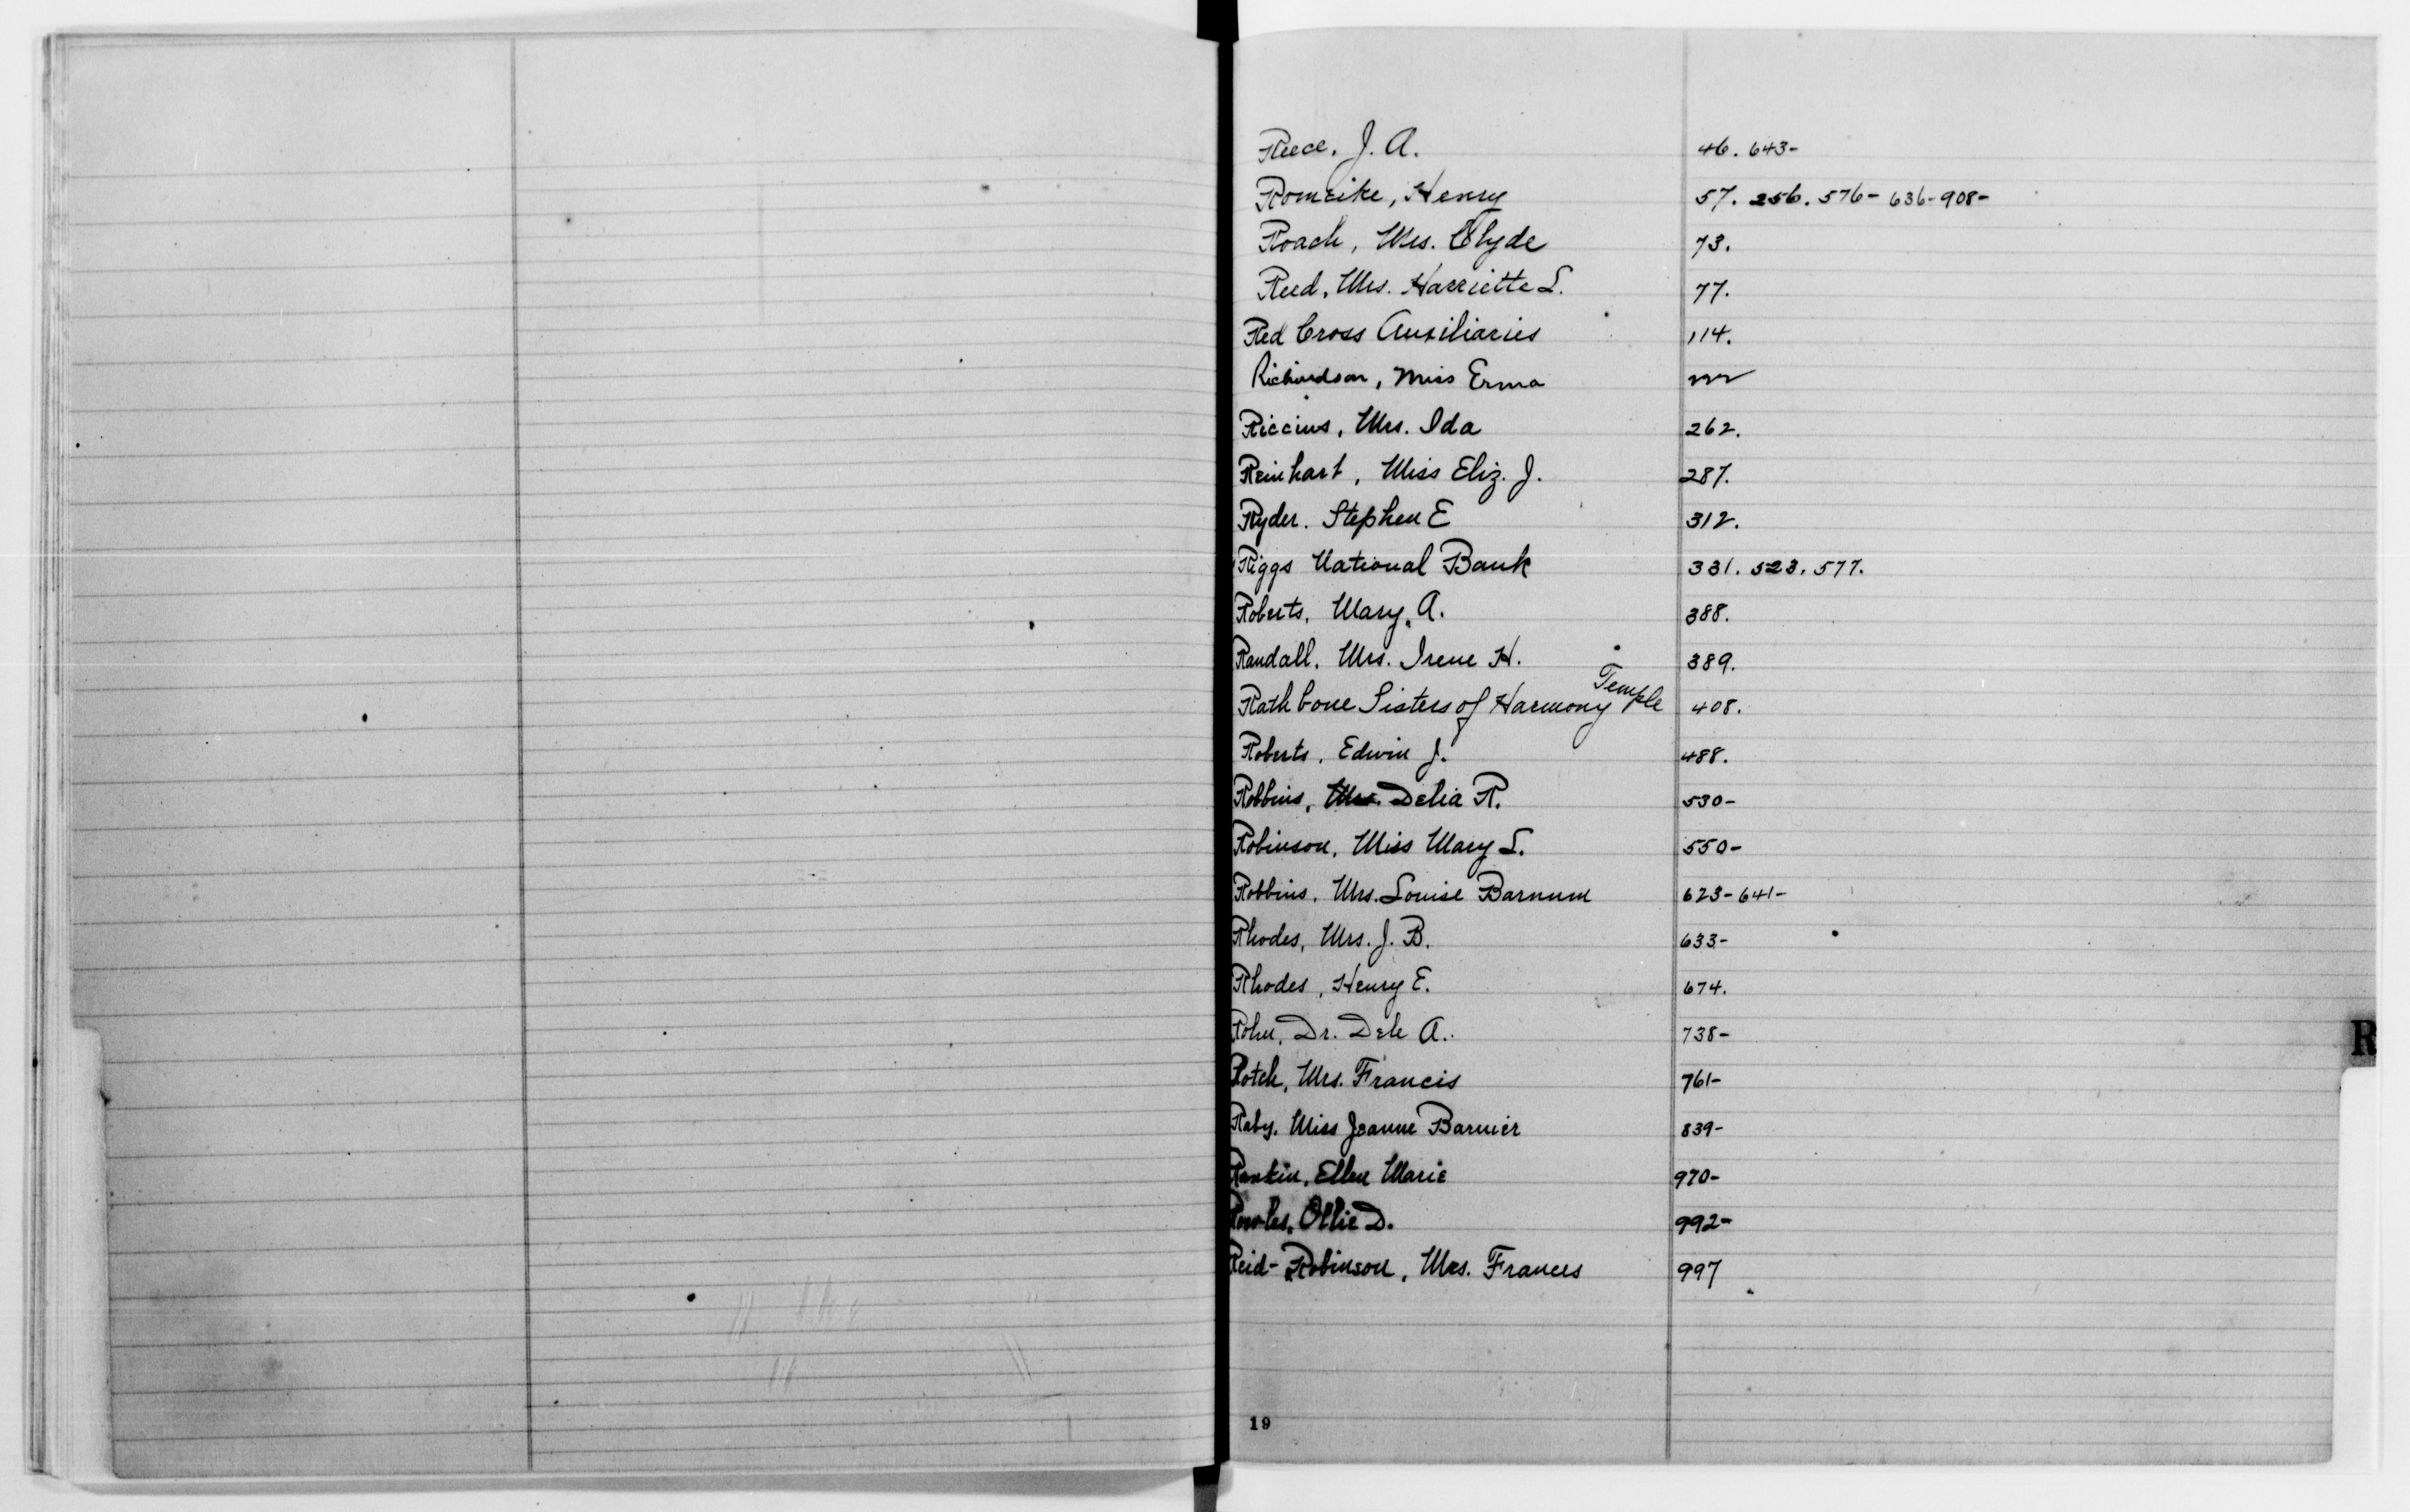 Reece. J. A. 46. 643-
Romeike, Henry 57. 256. 576- 636-908-
Roach, Mrs. Clyde 73.
Reed, Mrs. Harriette L. 77.
Red Cross Auxiliaries 114.
Richardson, Miss Erma
Riccius, Mrs. Ida 262.
Reinhart, Miss Eliz. J. 287.
Ryder. Stephen E 312.
Riggs National Bank 331. 523. 577.
Roberts, Mary A. 388.
Randall. Mrs. Irene H. 389.
Rathbone Sisters of Harmony Temple 408.
Roberts, Edwin J. 488.
Robbins, Mrs. Delia R. 530-
Robinson, Miss Mary L. 550-
Robbins. Mrs. Louise Barnum 623-641-
Rhodes, Mrs. J. B. 633-
Rhodes, Henry E. 674.
Dr. A. 738-
Rotch, Mrs. Francis 761-
Raby. Miss Jeanne Barnier 839-
Rankin, Ellen Marie 970-
Rowles, Ollie D. 992-
Reid-Robinson, Mrs. Frances 997
R
19